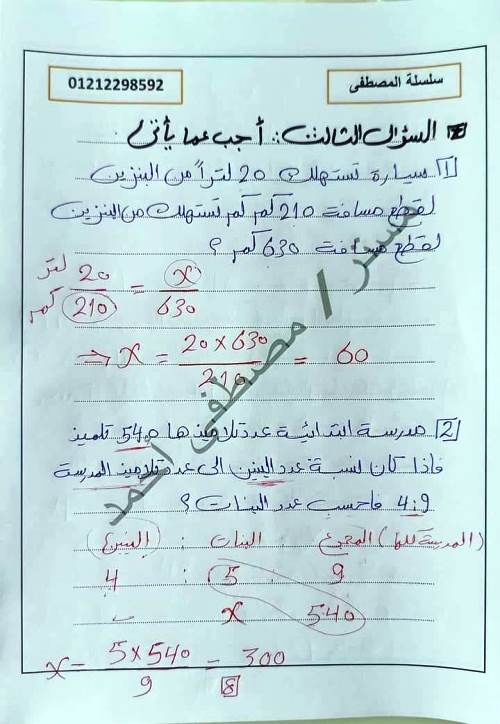 سلسلة المصطفى
01212298592
السؤال الثالث : أجب عما يأتى
1 سيارة تستهلك 20 لتراً من البنزين
لقطع مسافة 210 كم كم تستهلك من البنزين
لقطع مسافة 630 كم ؟
لتر 20 / كم 210 = x / 630
⇒ x = 20 × 630 / 210 = 60
2 مدرسة ابتدائية عدد تلاميذها 540 تلميذ
فاذا كان نسبة عدد البنين الى عدد تلاميذ المدرسة
4:9 فاحسب عدد البنات ؟
البنين : البنات : المجموع (المدرسة كلها)
4 : 5 : 9
x 540
x = 5 × 540 / 9 = 300
8
مستر / مصطفى احمد